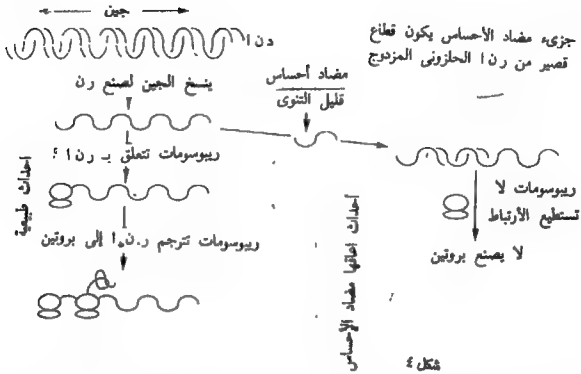 جين
د ن ا
جزىء مضاد الأحساس يكون قطاع
قصير من ر ن ا الحلزونى المزدوج
ينسخ الجين لصنع رن
مضاد أحساس
قليل التنوى
ريبوسومات تتعلق بـ ر ن ا
ريبوسومات لا
تستطيع الأرتباط
أحداث طبيعية
ريبوسومات تترجم ر.ن.ا إلى بروتين
لا يصنع بروتين
أحداث اعاقها مضاد الإحساس
شكل ٤